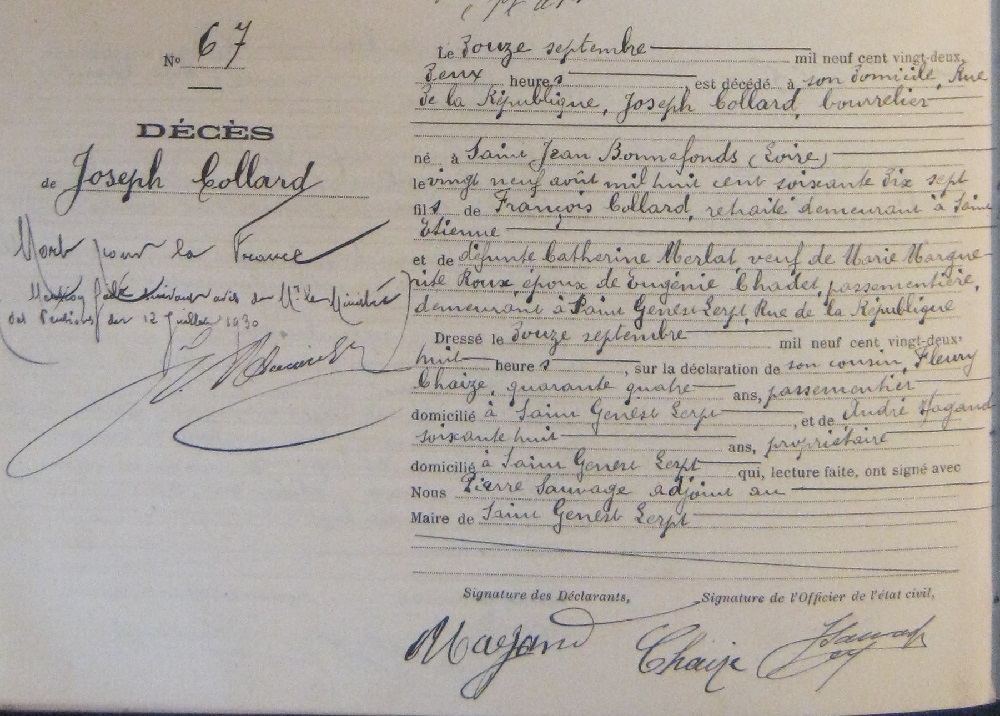 No 67
DÉCÈS
de Joseph Collard
Mort pour la France
Mention faite suivant avis de Mr le Ministre
des Pensions du 12 Juillet 1930
Le douze septembre mil neuf cent vingt-deux,
deux heures est décédé à son domicile, Rue
de la République, Joseph Collard, bourrelier
né à Saint Jean Bonnefonds (Loire)
le vingt neuf août mil huit cent soixante dix sept
fils de François Collard, retraité demeurant à Saint
Etienne
et de défunte Catherine Merlat, veuf de Marie Margue-
rite Roux, époux de Eugénie Chadet, passementière,
demeurant à Saint Genest Lerpt, Rue de la République
Dressé le douze septembre mil neuf cent vingt-deux,
huit heures, sur la déclaration de son cousin, Fleury
Chaize, quarante quatre ans, passementier
domicilié à Saint Genest Lerpt, et de André Magand
soixante huit ans, propriétaire
domicilié à Saint Genest Lerpt qui, lecture faite, ont signé avec
Nous Pierre Sauvage adjoint au
Maire de Saint Genest Lerpt
Signature des Déclarants, Signature de l'Officier de l'état civil,
Magand Chaize